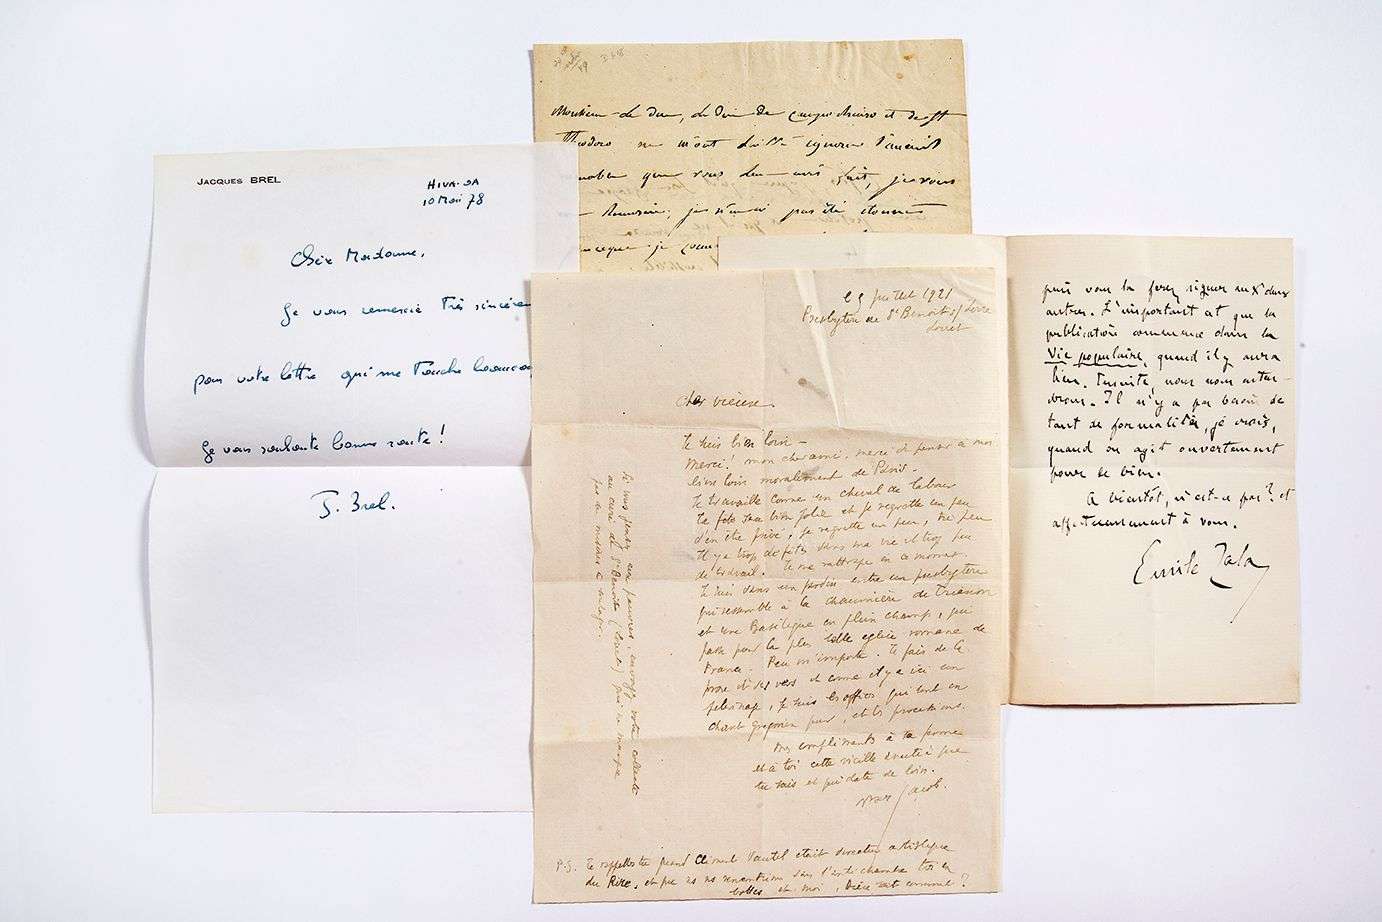 JACQUES BREL
HIVA-OA
10 Mai 78
Chère Madame,
Je vous remercie très sincère
pour votre lettre qui me touche beaucou
Je vous souhaite bonne route!
J. Brel.
Monsieur le Duc, le Duc de et de St
Theodoro ne m'ont laissé ignorer l'accueil
noble que vous leur avés fait, je vous
remercie; je n'ai pas été étonné
je
Juillet 1921
Presbytère de St Benoit s/ Loire
Loiret
Cher vieux
Je suis bien loin -
Merci! mon cher ami. merci de penser à moi
bien loin moralement de Paris.
Je travaille comme un cheval de labour
Ta fête sera bien jolie et je regrette un peu
d'en être privé, je regrette un peu, un peu
Il y a trop de fêtes dans ma vie et trop peu
de travail. Je me rattrape en ce moment.
Je suis dans un jardin entre un presbytère
qui ressemble à la chaumière de Trianon
et une Basilique en plein champ, qui
passe pour la plus belle église romane de
France. Peu m'importe. Je fais de la
prose et des vers et comme il y a ici un
pèlerinage, je suis les offices qui sont en
chant grégorien pur, et les processions.
Mes compliments à ta
et à toi cette vieille amitié que
tu sais et qui date de loin.
Max Jacob.
Si vous pensez aux pauvres, envoyez votre collecte
au curé de St Benoit (Loiret) qui ne manque
pas de misères à soulager.
P.S. Te rappelles tu quand Clément Vautel était directeur artistique
du Rire, et que ns ns rencontrions dans
bottes et moi,
puis vous la ferez signer aux deux
autres. L'important est que la
publication commence dans la
Vie populaire, quand il y aura
lieu. Ensuite, nous nous enten-
drons. Il n'y a pas besoin de
tant de formalités, je crois,
quand on agit ouvertement
pour le bien.
A bientôt, n'est-ce pas? et
affectueusement à vous.
Emile Zola